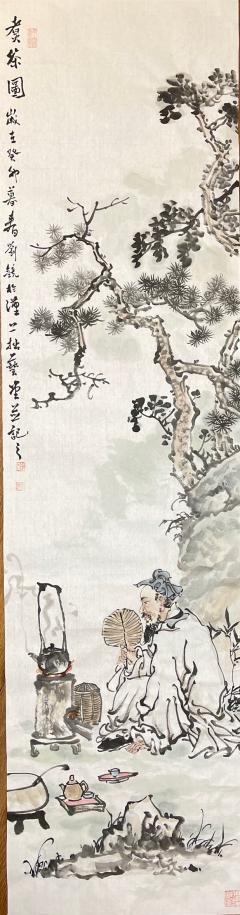 煮茶圖
歲在癸卯暮春劉競於漢上拙藝堂並記之